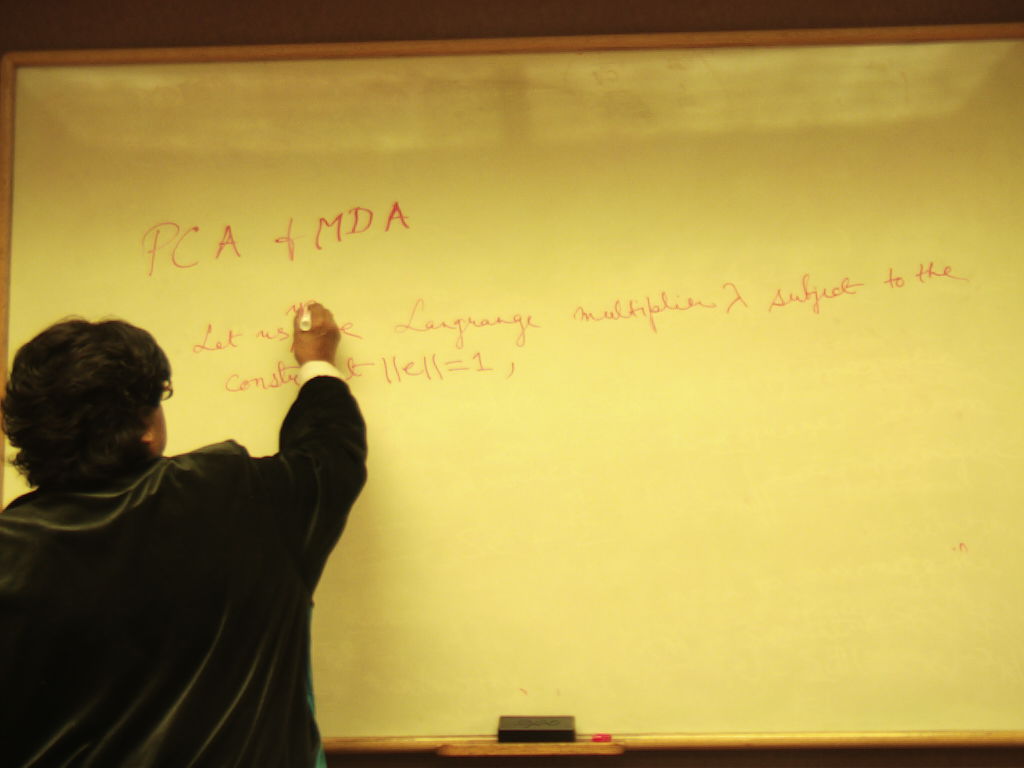 PCA & MDA
Let us Langrange multiplier λ subject to the
||e||=1,